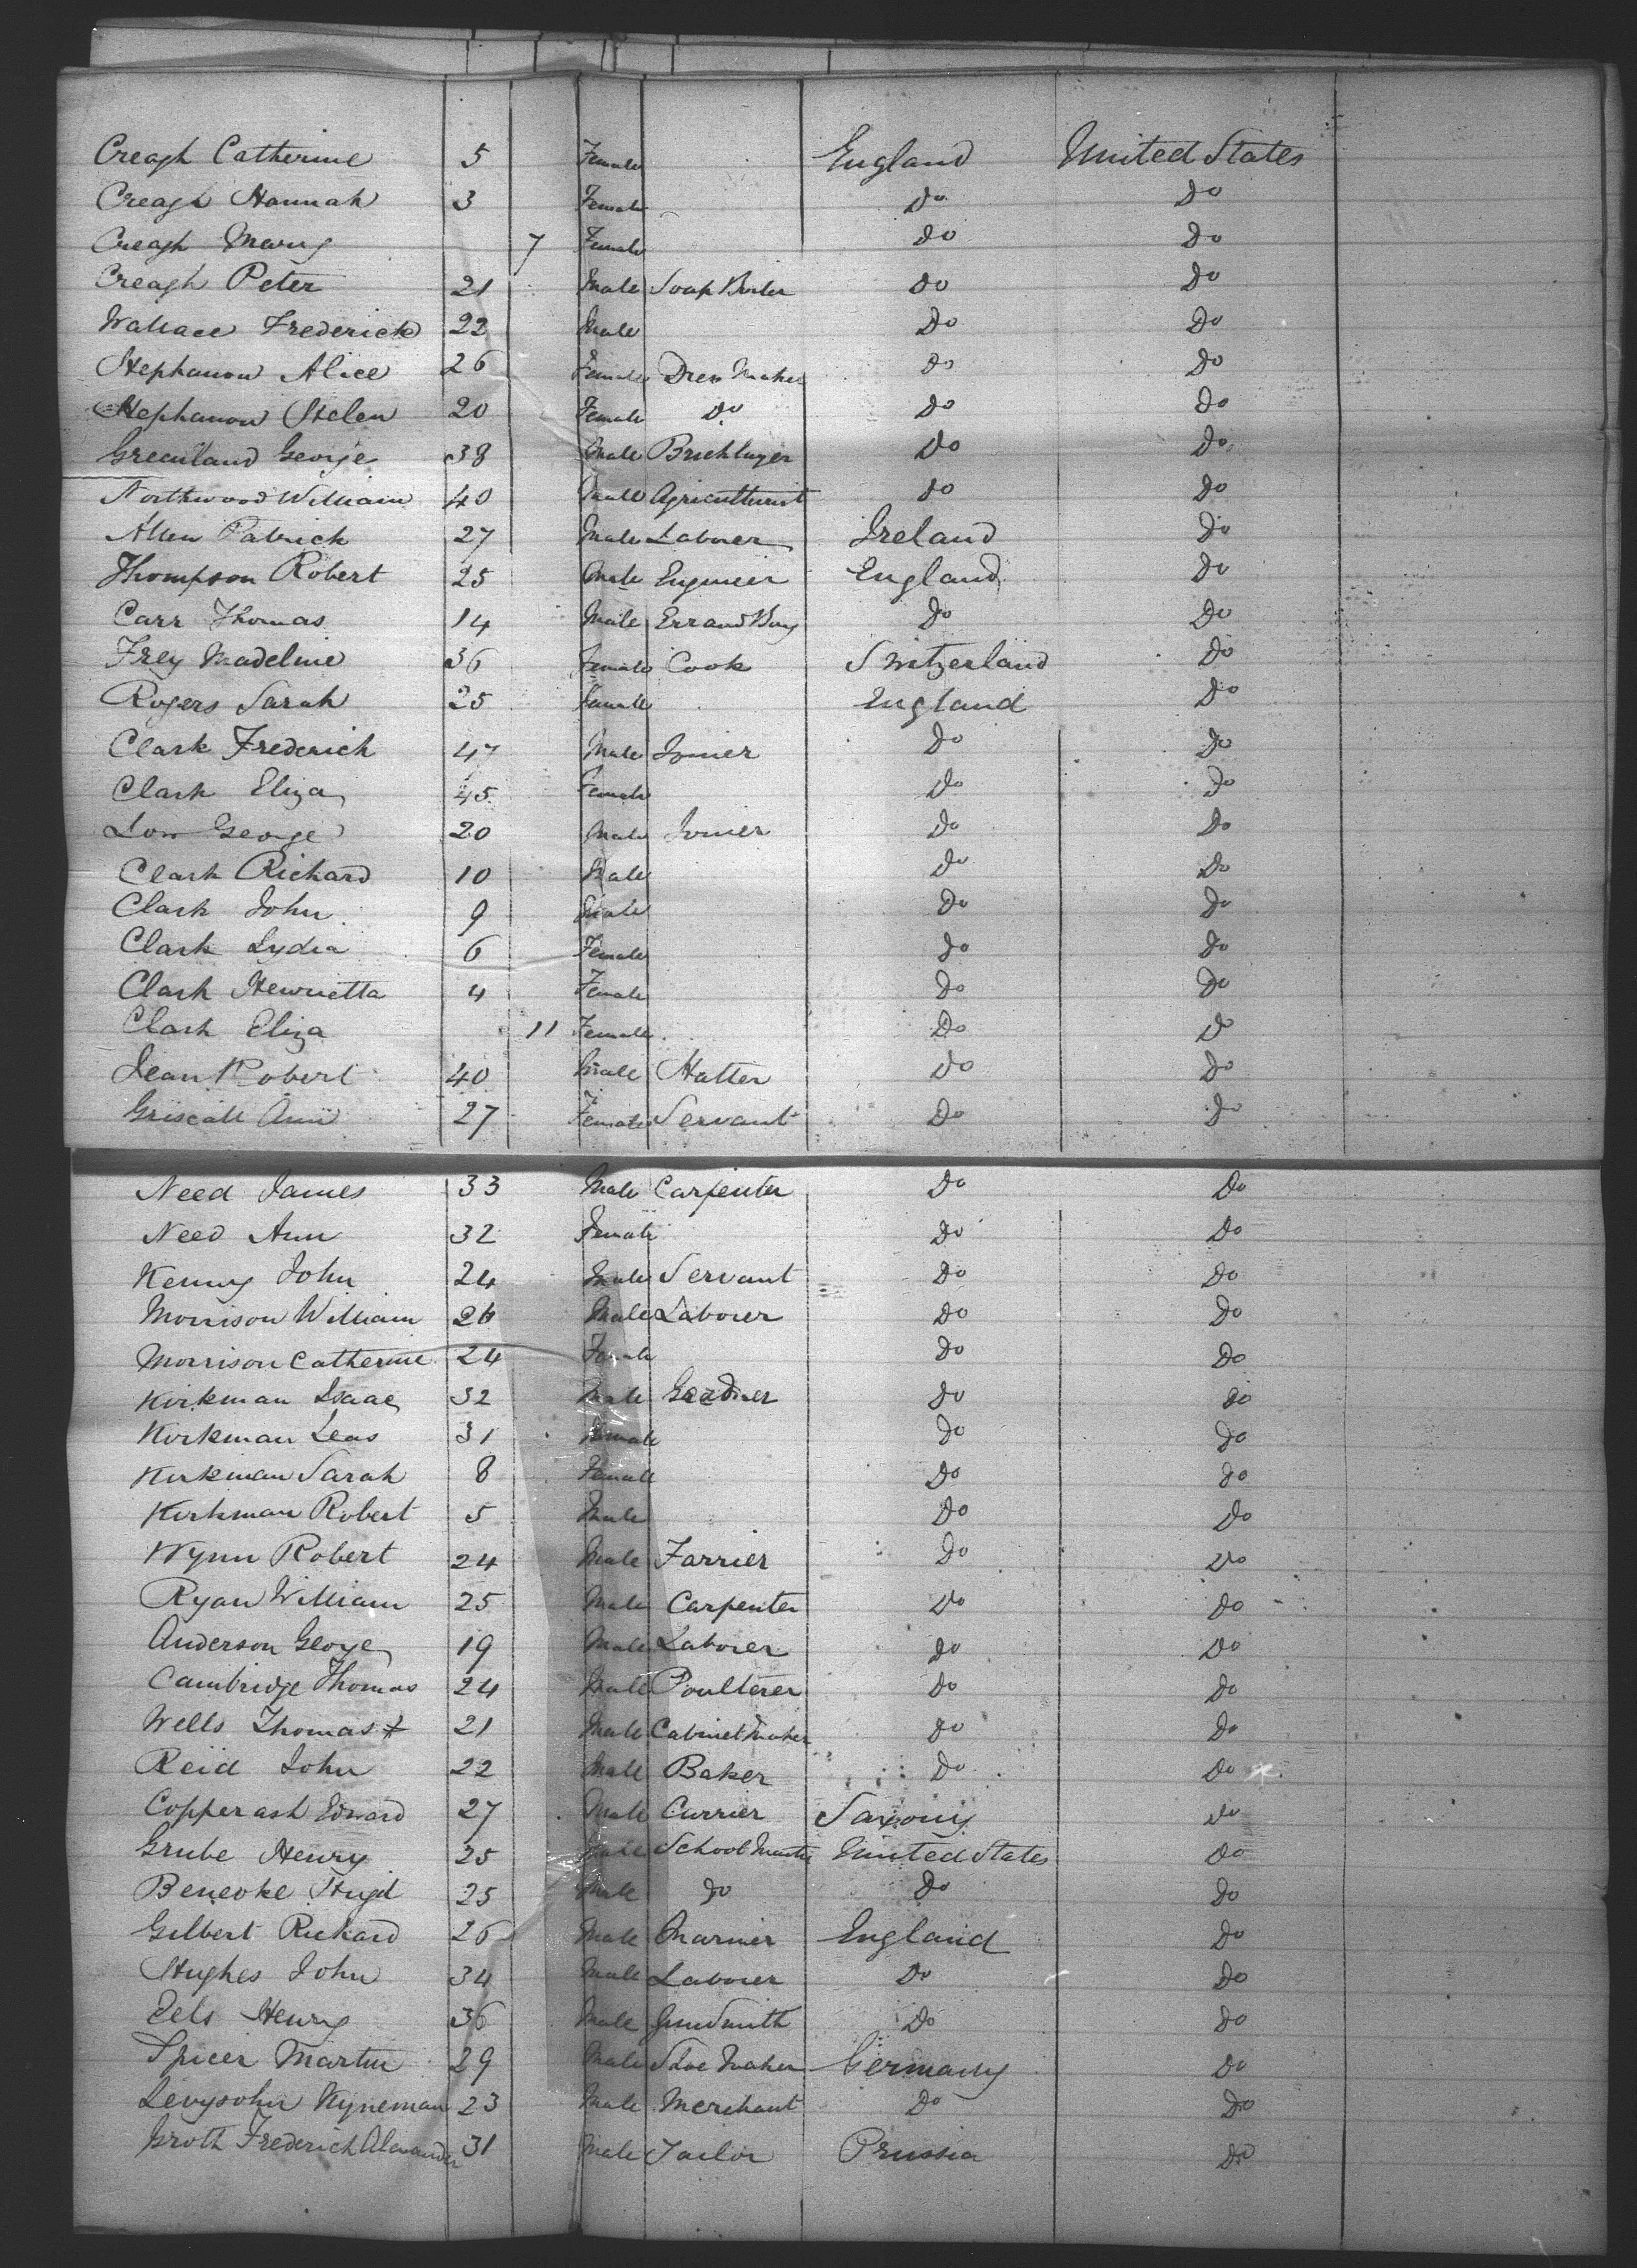 Creagh Catherine 5 Female England United States
Creagh Hannah 3 Female Do Do
Creagh Mary 7 Female Do Do
Creagh Peter 21 Male Soap Boiler Do Do
Wallace Frederick 22 Male Do Do
Stephanson Alice 26 Female Dress Maker Do Do
Stephanson Helen 20 Female Do Do Do
Greenland George 38 Male Bricklayer Do Do
Northwood William 40 Male Agriculturist Do Do
Allen Patrick 27 Male Laborer Ireland Do
Thompson Robert 25 Male Engineer England Do
Carr Thomas 14 Male Errand Boy Do Do
Frey Madeline 36 Female Cook Switzerland Do
Rogers Sarah 25 Female England Do
Clark Frederick 47 Male Joiner Do Do
Clark Eliza 45 Female Do Do
Low George 20 Male Joiner Do Do
Clark Richard 10 Male Do Do
Clark John 9 Male Do Do
Clark Lydia 6 Female Do Do
Clark Henrietta 4 Female Do Do
Clark Eliza 11 Female Do Do
Robert 40 Male Hatter Do Do
Griscall Ann 27 Female Servant Do Do
Need James 33 Male Carpenter Do Do
Need Ann 32 Female Do Do
Kenny John 24 Male Servant Do Do
Morrison William 26 Male Laborer Do Do
Morrison Catherine 24 Female Do Do
Kirkman Isaac 32 Male Gardner Do Do
Kirkman Leas 31 Female Do Do
Kirkman Sarah 8 Female Do Do
Kirkman Robert 5 Male Do Do
Wynn Robert 24 Male Farrier Do Do
Ryan William 25 Male Carpenter Do Do
Anderson George 19 Male Laborer Do Do
Cambridge Thomas 24 Male Poulterer Do Do
Wells Thomas 21 Male Cabinet Maker Do Do
Reid John 22 Male Baker Do Do
Copperash Edward 27 Male Currier Saxony Do
Grube Henry 25 Male School Master United States Do
25 Male Do Do Do
Gilbert Richard 26 Male Mariner England Do
Hughes John 34 Male Laborer Do Do
Eels Henry 36 Male Gun Smith Do Do
Spicer Martin 29 Male Shoe Maker Germany Do
Levysohn Kyneman 23 Male Merchant Do Do
Groth Frederich Alexander 31 Male Tailor Prussia Do